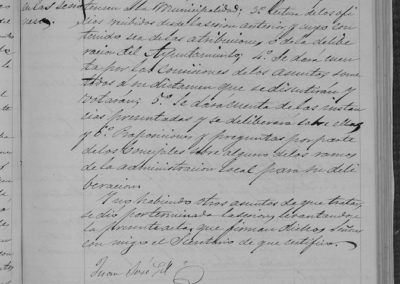 tencia a la Municipalidad; 3º lectura de los ofi
cios recibidos desde la sesion anterior y cuyo con
tenido sea de las atribuciones, o de la delibe
racion del Ayuntamiento; 4º Se dara cuen
ta por las Comisiones de los asuntos some
tidos a su dictamen que se discutiran y
votaran; 5º Se dara cuenta de las instan
cias presentadas y se deliberara sobre ellas
y 6º Proposiciones y preguntas por parte
de los Concejales sobre alguno de los ramos
de la administracion local para su deli
beracion.
Y no habiendo otros asuntos de que tratar,
se dio por terminada la sesion, levantandose
la presente acta, que firman dichos Señores
con migo el Secretario de que certifico.
Juan José